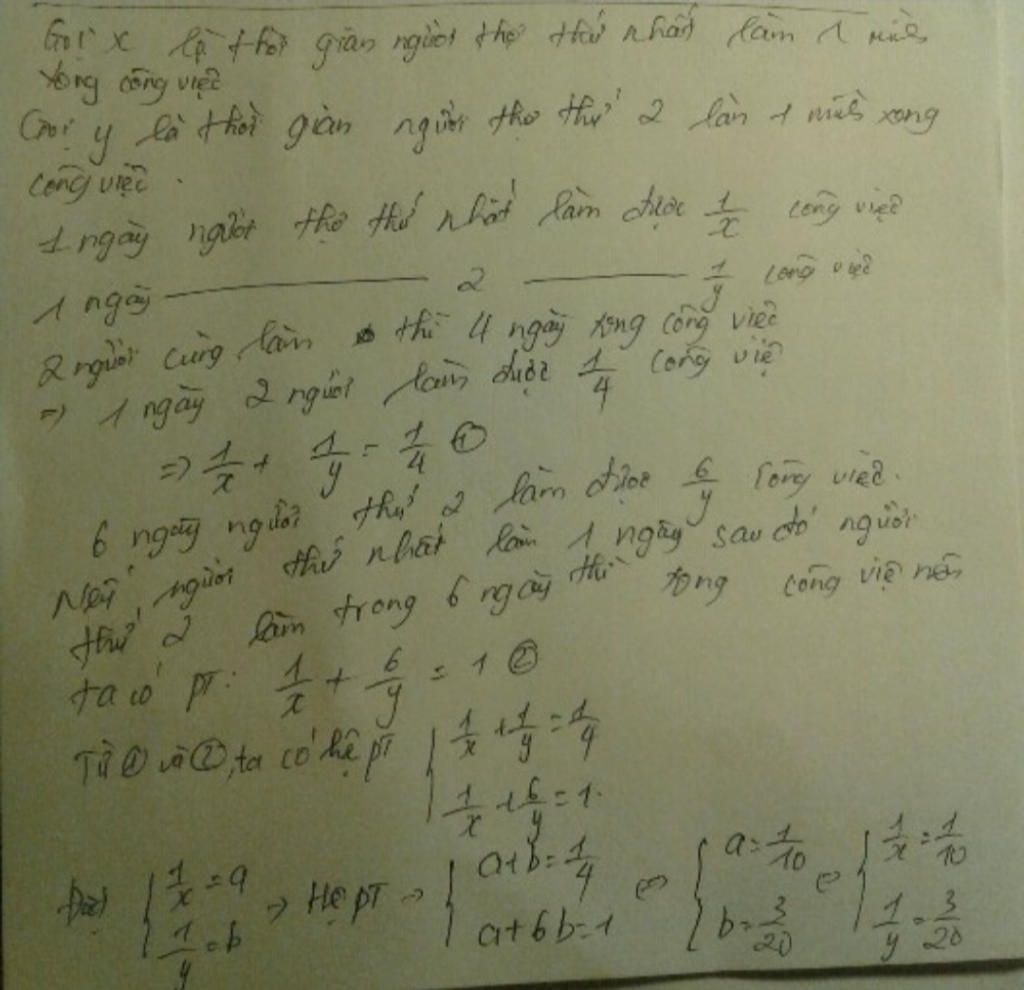 Gọi x là thời gian người thợ thứ nhất làm 1 mình
xong công việc
Gọi y là thời gian người thợ thứ 2 làm 1 mình xong
công việc.
1 ngày người thợ thứ nhất làm được 1/x công việc
1 ngày ——— 2 ——— 1/y công việc
2 người cùng làm thì 4 ngày xong công việc
=> 1 ngày 2 người làm được 1/4 công việ
=> 1/x + 1/y = 1/4 ①
6 ngày người thứ 2 làm được 6/y công việc.
Nếu người thứ nhất làm 1 ngày sau đó người
thứ 2 làm trong 6 ngày thì xong công việ nên
ta có PT: 1/x + 6/y = 1 ②
Từ ① và ②, ta có hệ PT { 1/x + 1/y = 1/4
1/x + 6/y = 1.
Đặt { 1/x = a → Hệ PT → { a+b = 1/4 ⇔ { a = 1/10 ⇔ { 1/x = 1/10
1/y = b a+6b=1 b = 3/20 1/y = 3/20